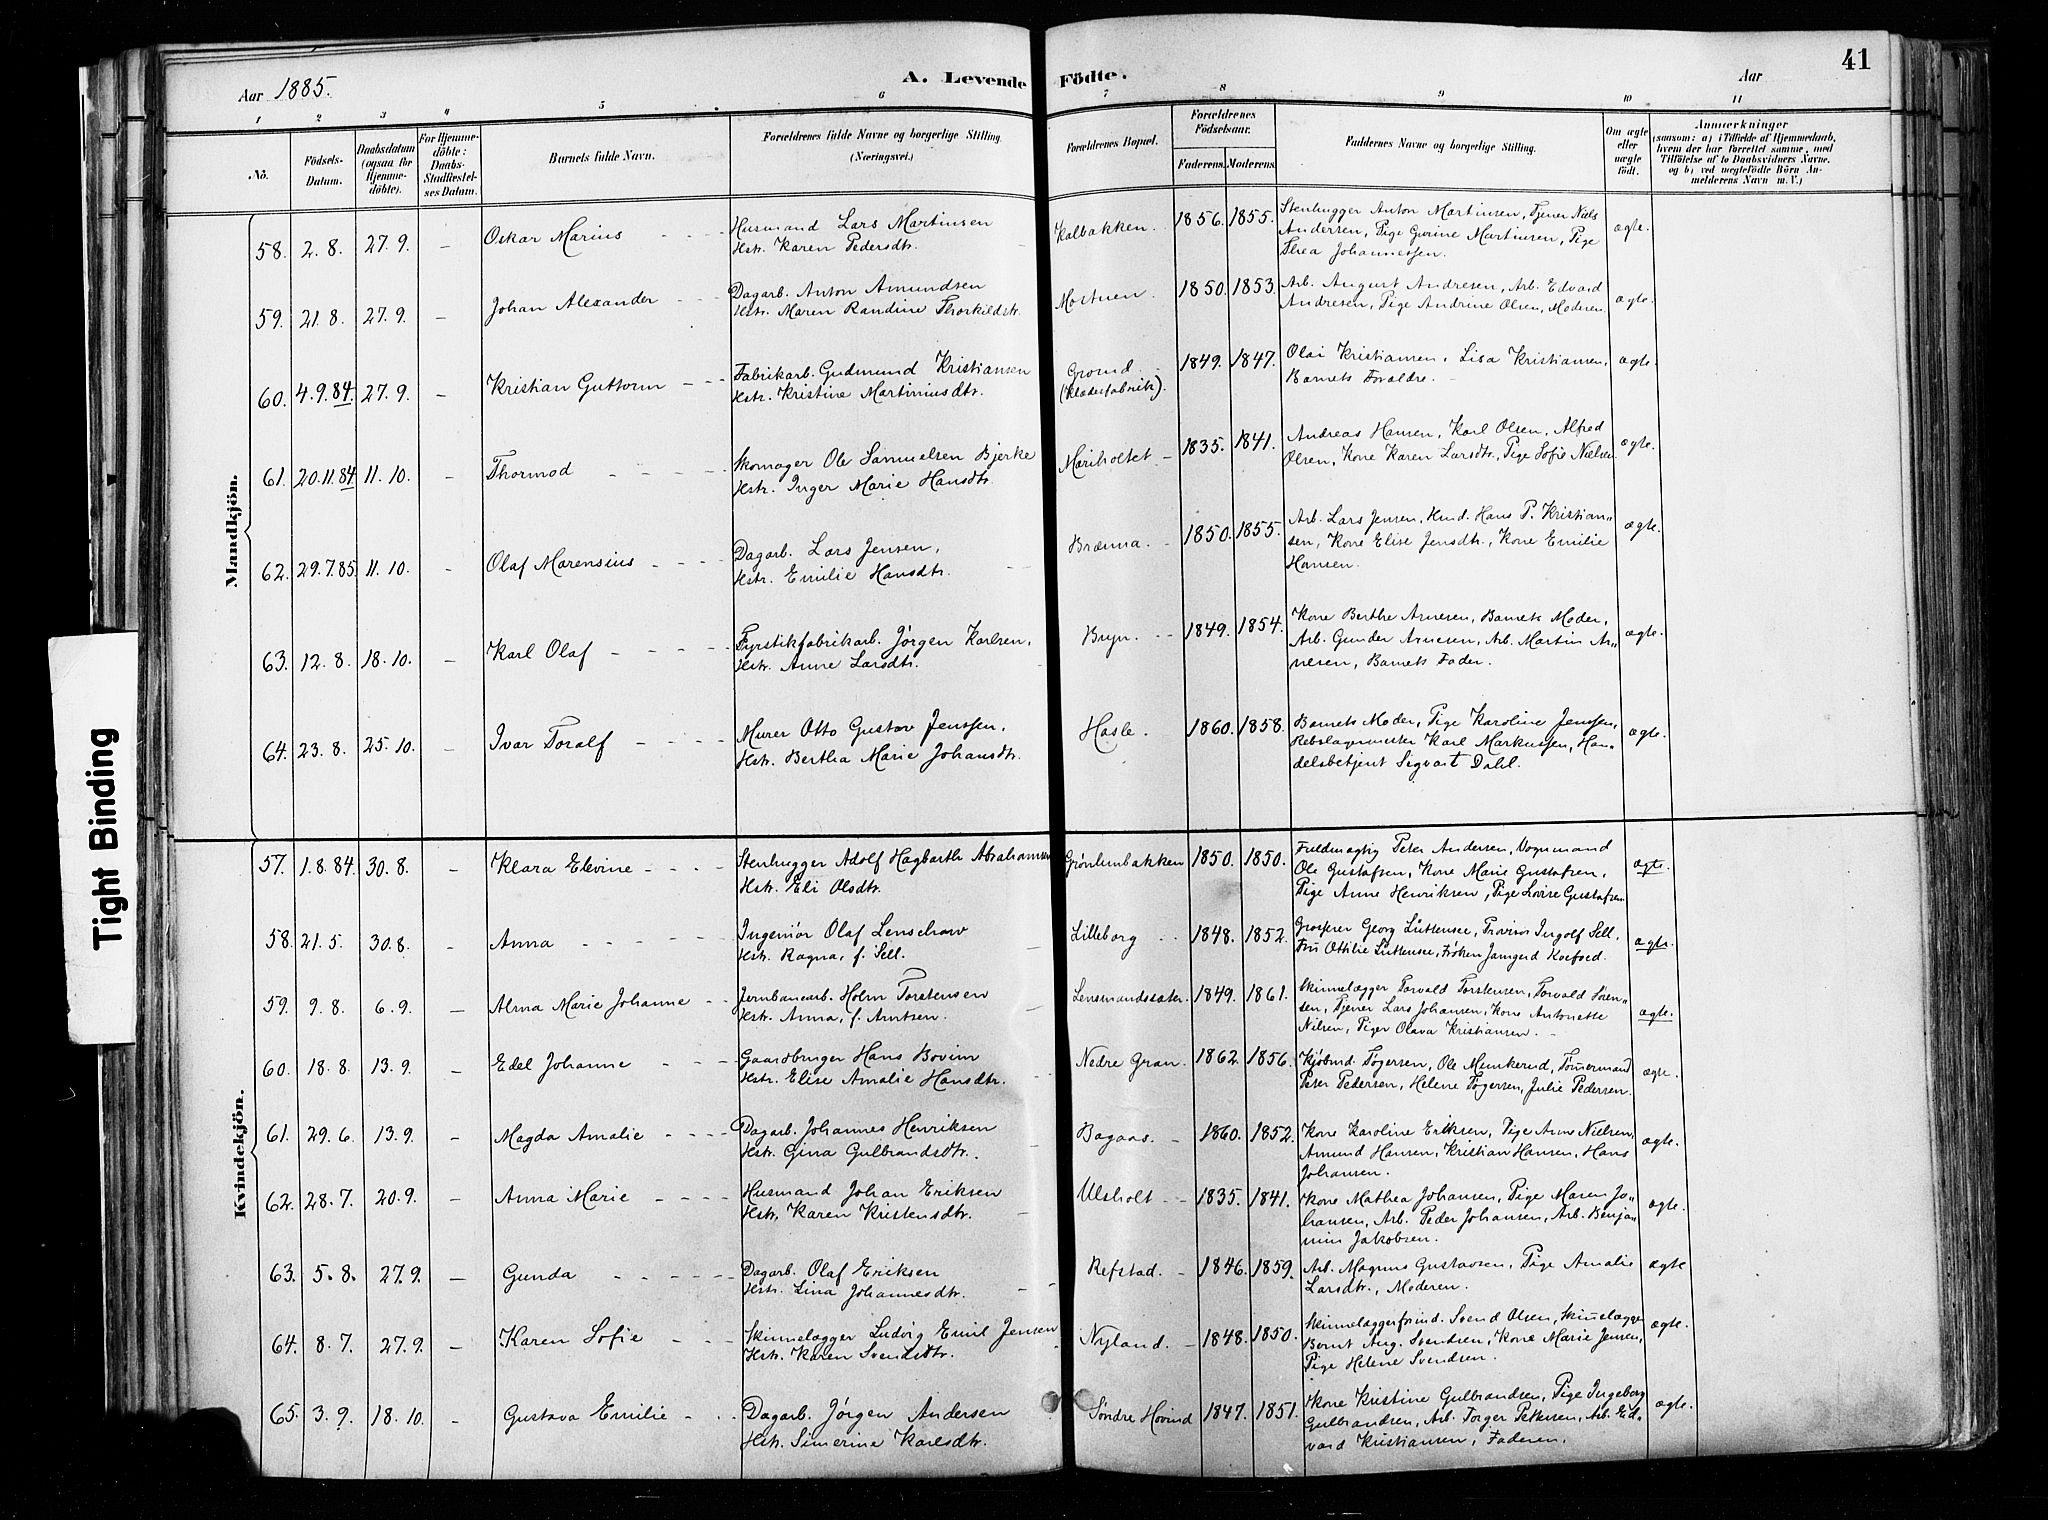 41
Aar 1885.
A. Levende Födte.
Aar
1 2 3 4 5 6 7 8 9 10 11
No.
Födsels-Datum.
Daabsdatum (ogsaa for Hjemme-döbte).
For Hjemme-döbte: Daabs-Stadfæstel-ses Datum.
Barnets fulde Navn.
Forældrenes fulde Navne og borgerlige Stilling. (Næringsvei.)
Forældrenes Bopæl.
Forældrenes Födselsaar.
Faderens. Moderens.
Faddernes Navne og borgerlige Stilling.
Om ægte eller uægte födt.
Anmærkninger
(saasom: a) i Tilfælde af Hjemmedaab, hvem der har forrettet samme, med Tilföielse af to Daabsvidners Navne, og b) ved uægtefödte Börn Anmelderens Navn m. V.)
Mandkjön.
58. 2. 8. 27. 9. – Oskar Marius
Husmand Lars Martinsen
Hstr. Karen Pedersdtr.
Kalbakken. 1856. 1855.
Stenhugger Anton Martinsen, Tjener Niels
Andersen, Pige Gurine Martinsen, Pige
Thea Johannessen.
ægte.
59. 21. 8. 27. 9. – Johan Alexander
Dagarb. Anton Amundsen
Hstr. Maren Randine Thorkildstr.
Mostuen. 1850. 1853.
Arb. August Andresen, Arb. Edvard
Andresen, Pige Andrine Olsen, Moderen.
ægte.
60. 4. 9. 84. 27. 9. – Kristian Guttorm
Fabrikarb. Gudmund Kristiansen
Hstr. Kristine Martiniusdtr.
Grorud
(Klædefabrik). 1849. 1847.
Olai Kristiansen, Lisa Kristiansen,
Barnets Forældre.
ægte.
61. 20. 11. 84. 11. 10. – Thormod
Skomager Ole Samuelsen Bjerke
Hstr. Inger Marie Hansdtr.
Mariholtet 1835. 1841.
Andreas Hansen, Karl Olsen, Alfred
Olsen, Kone Karen Larsdtr, Pige Sofie Nielsen.
ægte.
62. 29. 7. 85. 11. 10. – Olaf Marensius
Dagarb. Lars Jensen,
Hstr. Emilie Hansdtr.
Brænna. 1850. 1855.
Arb. Lars Jensen, Hmd. Hans P. Kristian-
sen, Kone Elise Jensdtr., Kone Emilie
Hansen.
ægte.
63. 12. 8. 18. 10. – Karl Olaf
Fyrstikfabrikarb. Jörgen Karlsen,
Hstr. Anne Larsdtr.
Bryn. 1849. 1854.
Kone Berthe Arnesen, Barnets Moder,
Arb. Gunder Arnesen, Arb. Martin Ar-
nesen, Barnets Fader.
ægte.
64. 23. 8. 25. 10. – Ivar Toralf
Murer Otto Gustav Jenssen,
Hstr. Bertha Marie Johansdtr.
Hasle. 1860. 1858.
Barnets Moder, Pige Karoline Jenssen,
Rebslagermester Karl Markussen, Han-
delsbetjent Sigvart Dahl.
ægte.
Kvindekjön.
57. 1. 8. 84. 30. 8. – Klara Elevine
Stenhugger Adolf Hagbarth Abrahamsen
Hstr. Eli Olsdtr.
Grønlundbakken 1850. 1850.
Fuldmægtig Peter Andersen, Vognmand
Ole Gustafsen, Kone Marie Gustafsen,
Pige Anne Henriksen, Pige Lovise Gustafsen
ægte.
58. 21. 5. 30. 8. – Anna
Ingeniør Olaf Lenschow
Hstr. Ragna, f. Sell.
Lilleborg 1848. 1852.
Grosserer Georg Lüttensee, Provisor Ingolf Sell,
Fru Ottilie Lüttensee, Frøken Koefoed.
ægte.
59. 9. 8. 6. 9. – Alma Marie Johanne
Jernbanearb. Holm Torstensen
Hstr. Anna, f. Arntsen.
Lensmandssæter. 1849. 1861.
Skinnelægger Torvald Torstensen, Torvald Sören-
sen, Tjener Lars Johansen, Kone Antonette
Nilsen, Piger Olava Kristiansen.
ægte.
60. 18. 8. 13. 9. – Edel Johanne
Gaardbruger Hans Bovim
Hstr. Elise Amalie Hansdtr.
Nedre Gran 1862. 1856.
Kjøbmd. Tøgersen, Ole Munkerud, Tømermand
Peter Pedersen, Helene Tøgersen, Julie Pedersen.
ægte.
61. 29. 6. 13. 9. – Magda Amalie
Dagarb. Johannes Henriksen
Hstr. Gina Gulbrandsdtr.
Bogaas. 1860. 1852.
Kone Karoline Eriksen, Pige Anne Nielsen,
Amund Hansen, Kristian Hansen, Hans
Johansen.
ægte.
62. 28. 7. 20. 9. – Anna Marie
Husmand Johan Eriksen
Hstr. Karen Kristensdtr.
Ulsholt 1835. 1841.
Kone Mathea Johansen, Pige Maren Jo-
hansen, Arb. Peder Johansen, Arb. Benja-
min Jakobsen.
ægte.
63. 5. 8. 27. 9. – Gunda
Dagarb. Olaf Eriksen
Hstr. Lina Johannesdtr.
Refstad. 1846. 1859.
Arb. Magnus Gustavsen, Pige Amalie
Larsdtr., Moderen.
ægte
64. 8. 7. 27. 9. – Karen Sofie
Skinnelægger Ludvig Emil Jensen
Hstr. Karen Svendsdtr.
Nyland. 1848. 1850.
Skinnelæggerformd. Svend Olsen, Skinnelægger
Bernt Aug. Svendsen, Kone Marie Jensen,
Pige Helene Svendsen.
ægte.
65. 3. 9. 18. 10. – Gustava Emilie
Dagarb. Jörgen Andersen
Hstr. Simerine Karlsdtr.
Söndre Hovind 1847. 1851.
Kone Kristine Gulbrandsen, Pige Ingeborg
Gulbrandsen, Arb. Torger Pettersen, Arb. Ed-
vard Kristiansen, Faderen.
ægte.
Tight Binding